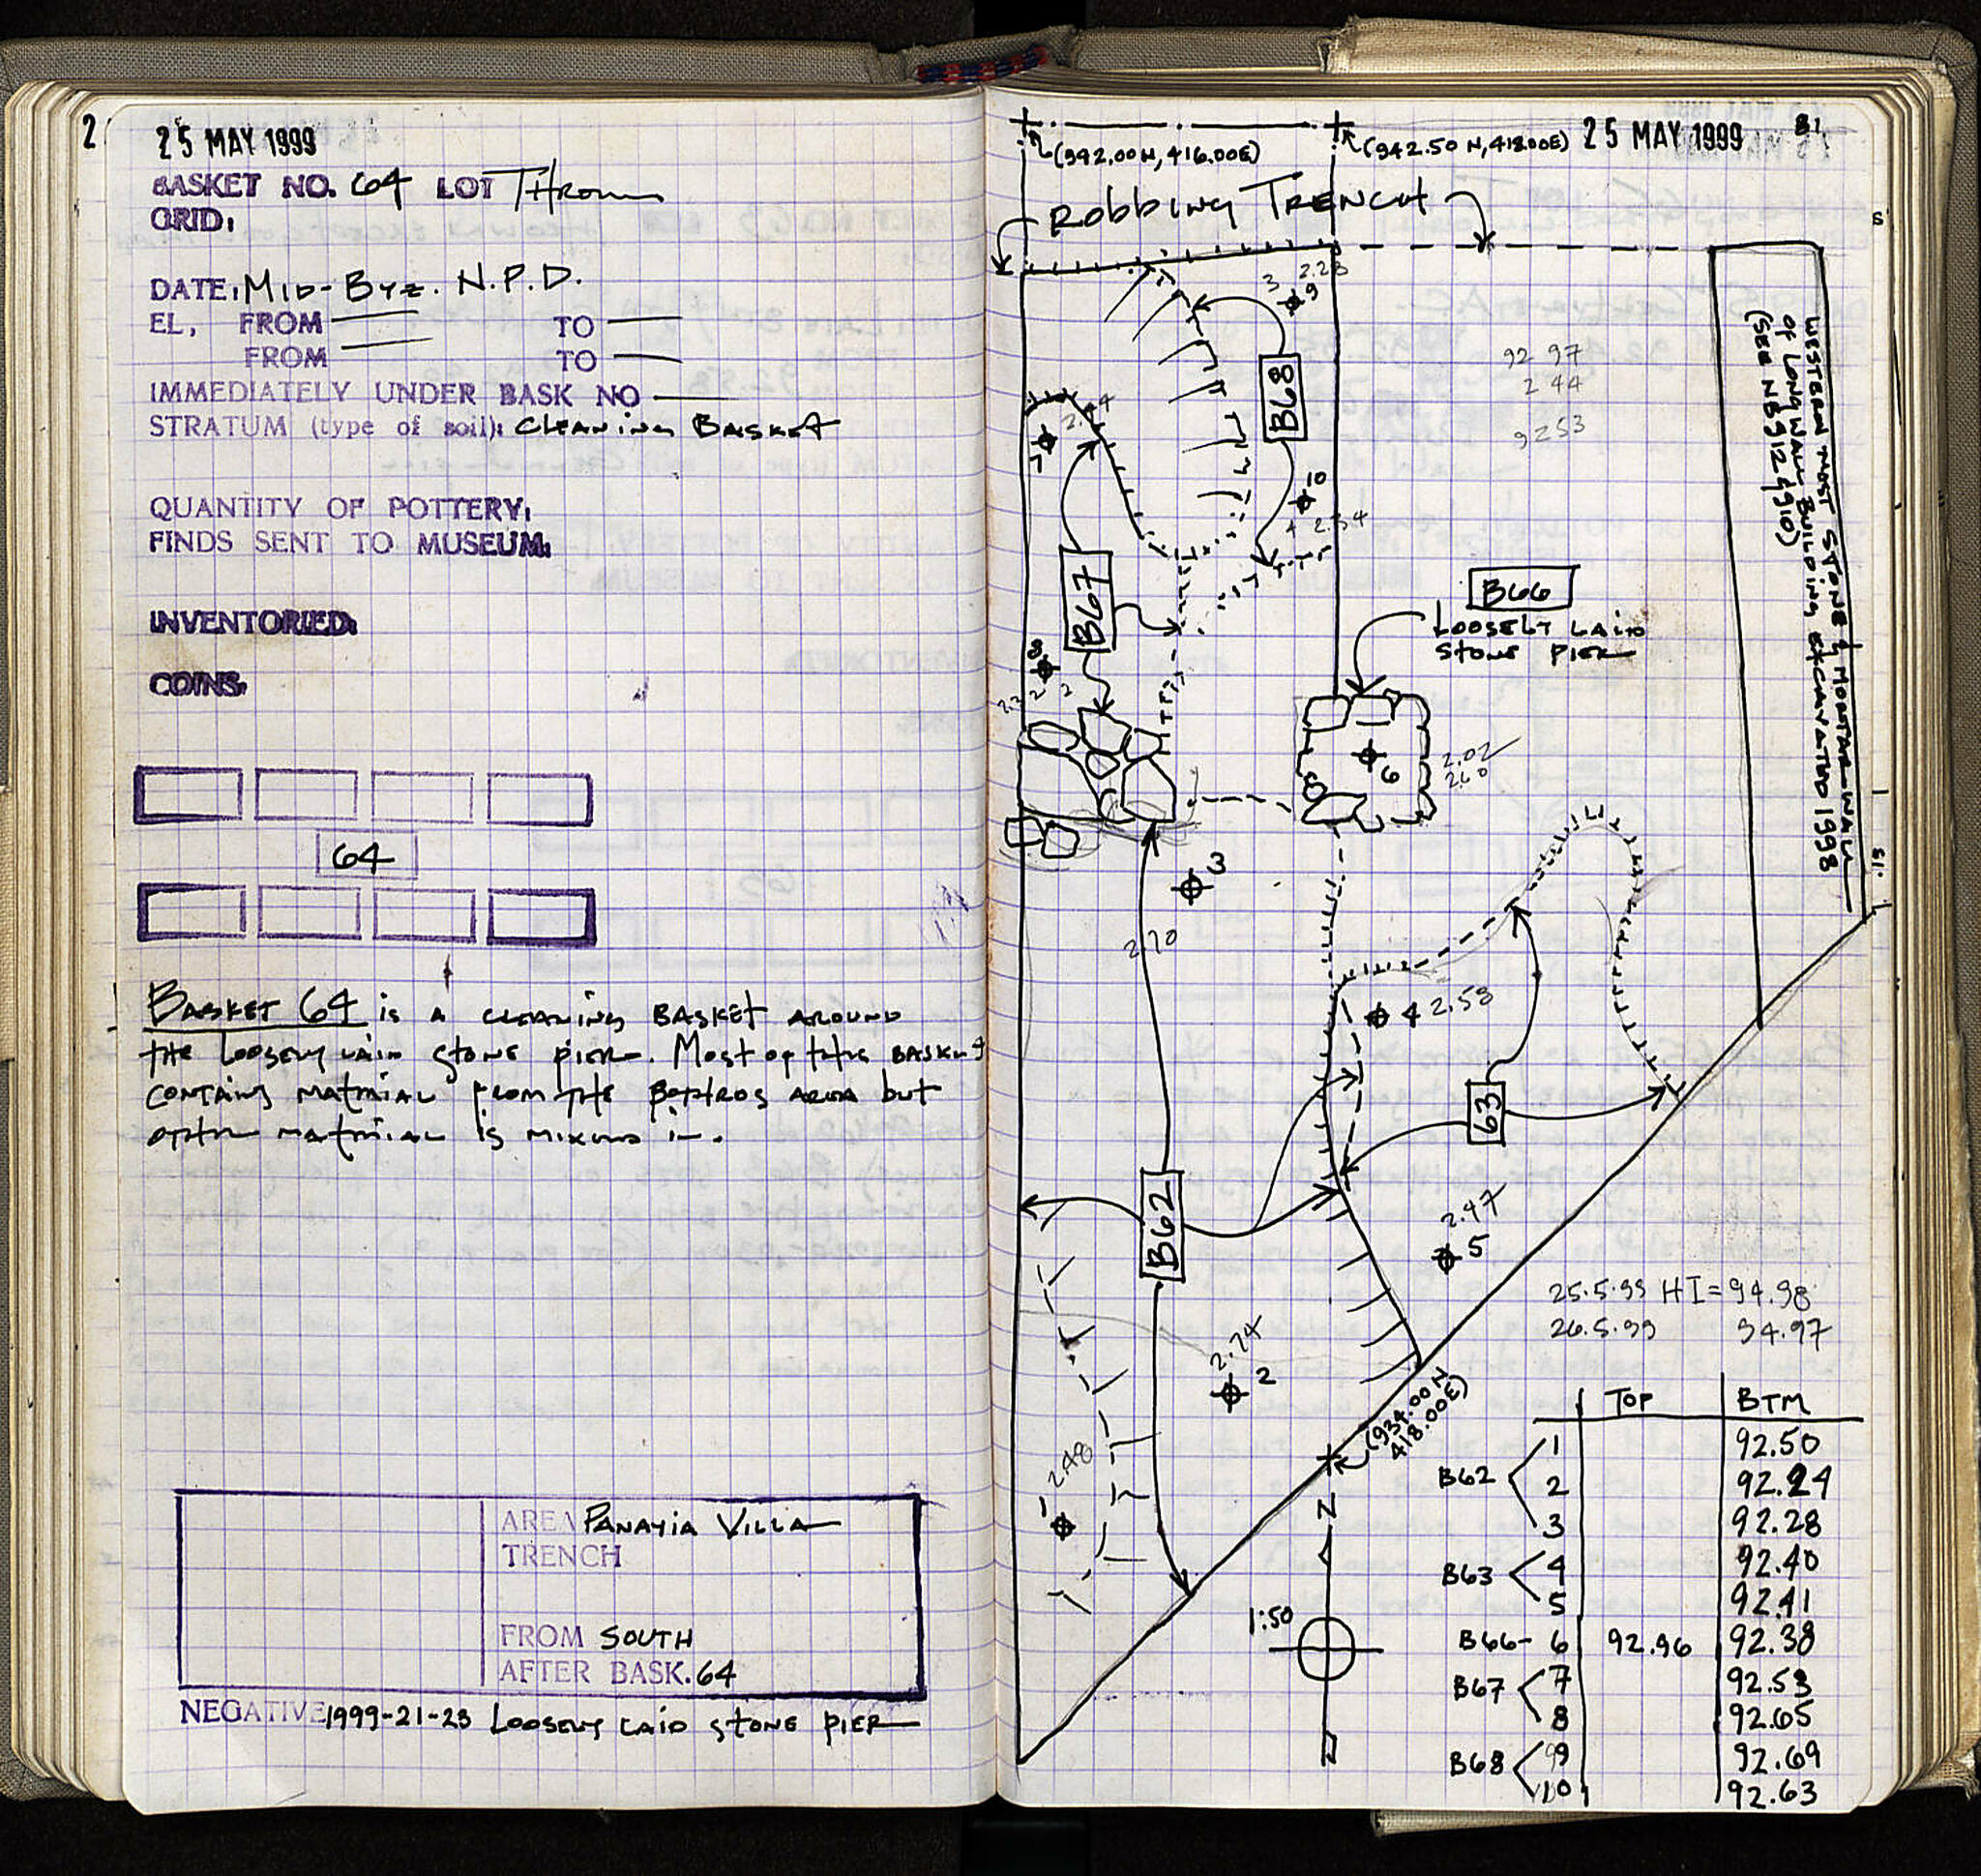 2
25 MAY 1999
BASKET NO. 64 LOT Thrown
GRID:
DATE: Mid-Byz. N.P.D.
EL, FROM — TO —
FROM — TO —
IMMEDIATELY UNDER BASK NO —
STRATUM (type of soil): Cleaning Basket
QUANTITY OF POTTERY:
FINDS SENT TO MUSEUM:
INVENTORIED:
COINS:
64
Basket 64 is a cleaning basket around
the loosely laid stone pier. Most of this basket
contains material from the bothros area but
other material is mixed in.
AREA Panayia Villa
TRENCH
FROM South
AFTER BASK. 64
NEGATIVE 1999-21-23 Loosely laid stone pier
25 MAY 1999
81
(942.00 N, 416.00E)
(942.50 N, 418.00E)
Robbing Trench
3 2.28
9
B68
92 97
2 44
92 53
Western most stone & mortar wall
of Long Wall Building excavated 1998
(See NB912 & 910)
2.44
7
10
2.34
B67
B66
Loosely laid
stone pier
8
2.32
6
2.02
2.60
3
2.70
4 2.58
63
B62
2.47
5
25.5.99 HI = 94.98
26.5.99 94.97
2.74
2
(934.00 N
418.00E)
2.48
1
N
1:50
TOP BTM
B62 1 92.50
2 92.24
3 92.28
B63 4 92.40
5 92.41
B66- 6 92.96 92.38
B67 7 92.53
8 92.65
B68 9 92.69
10 92.63